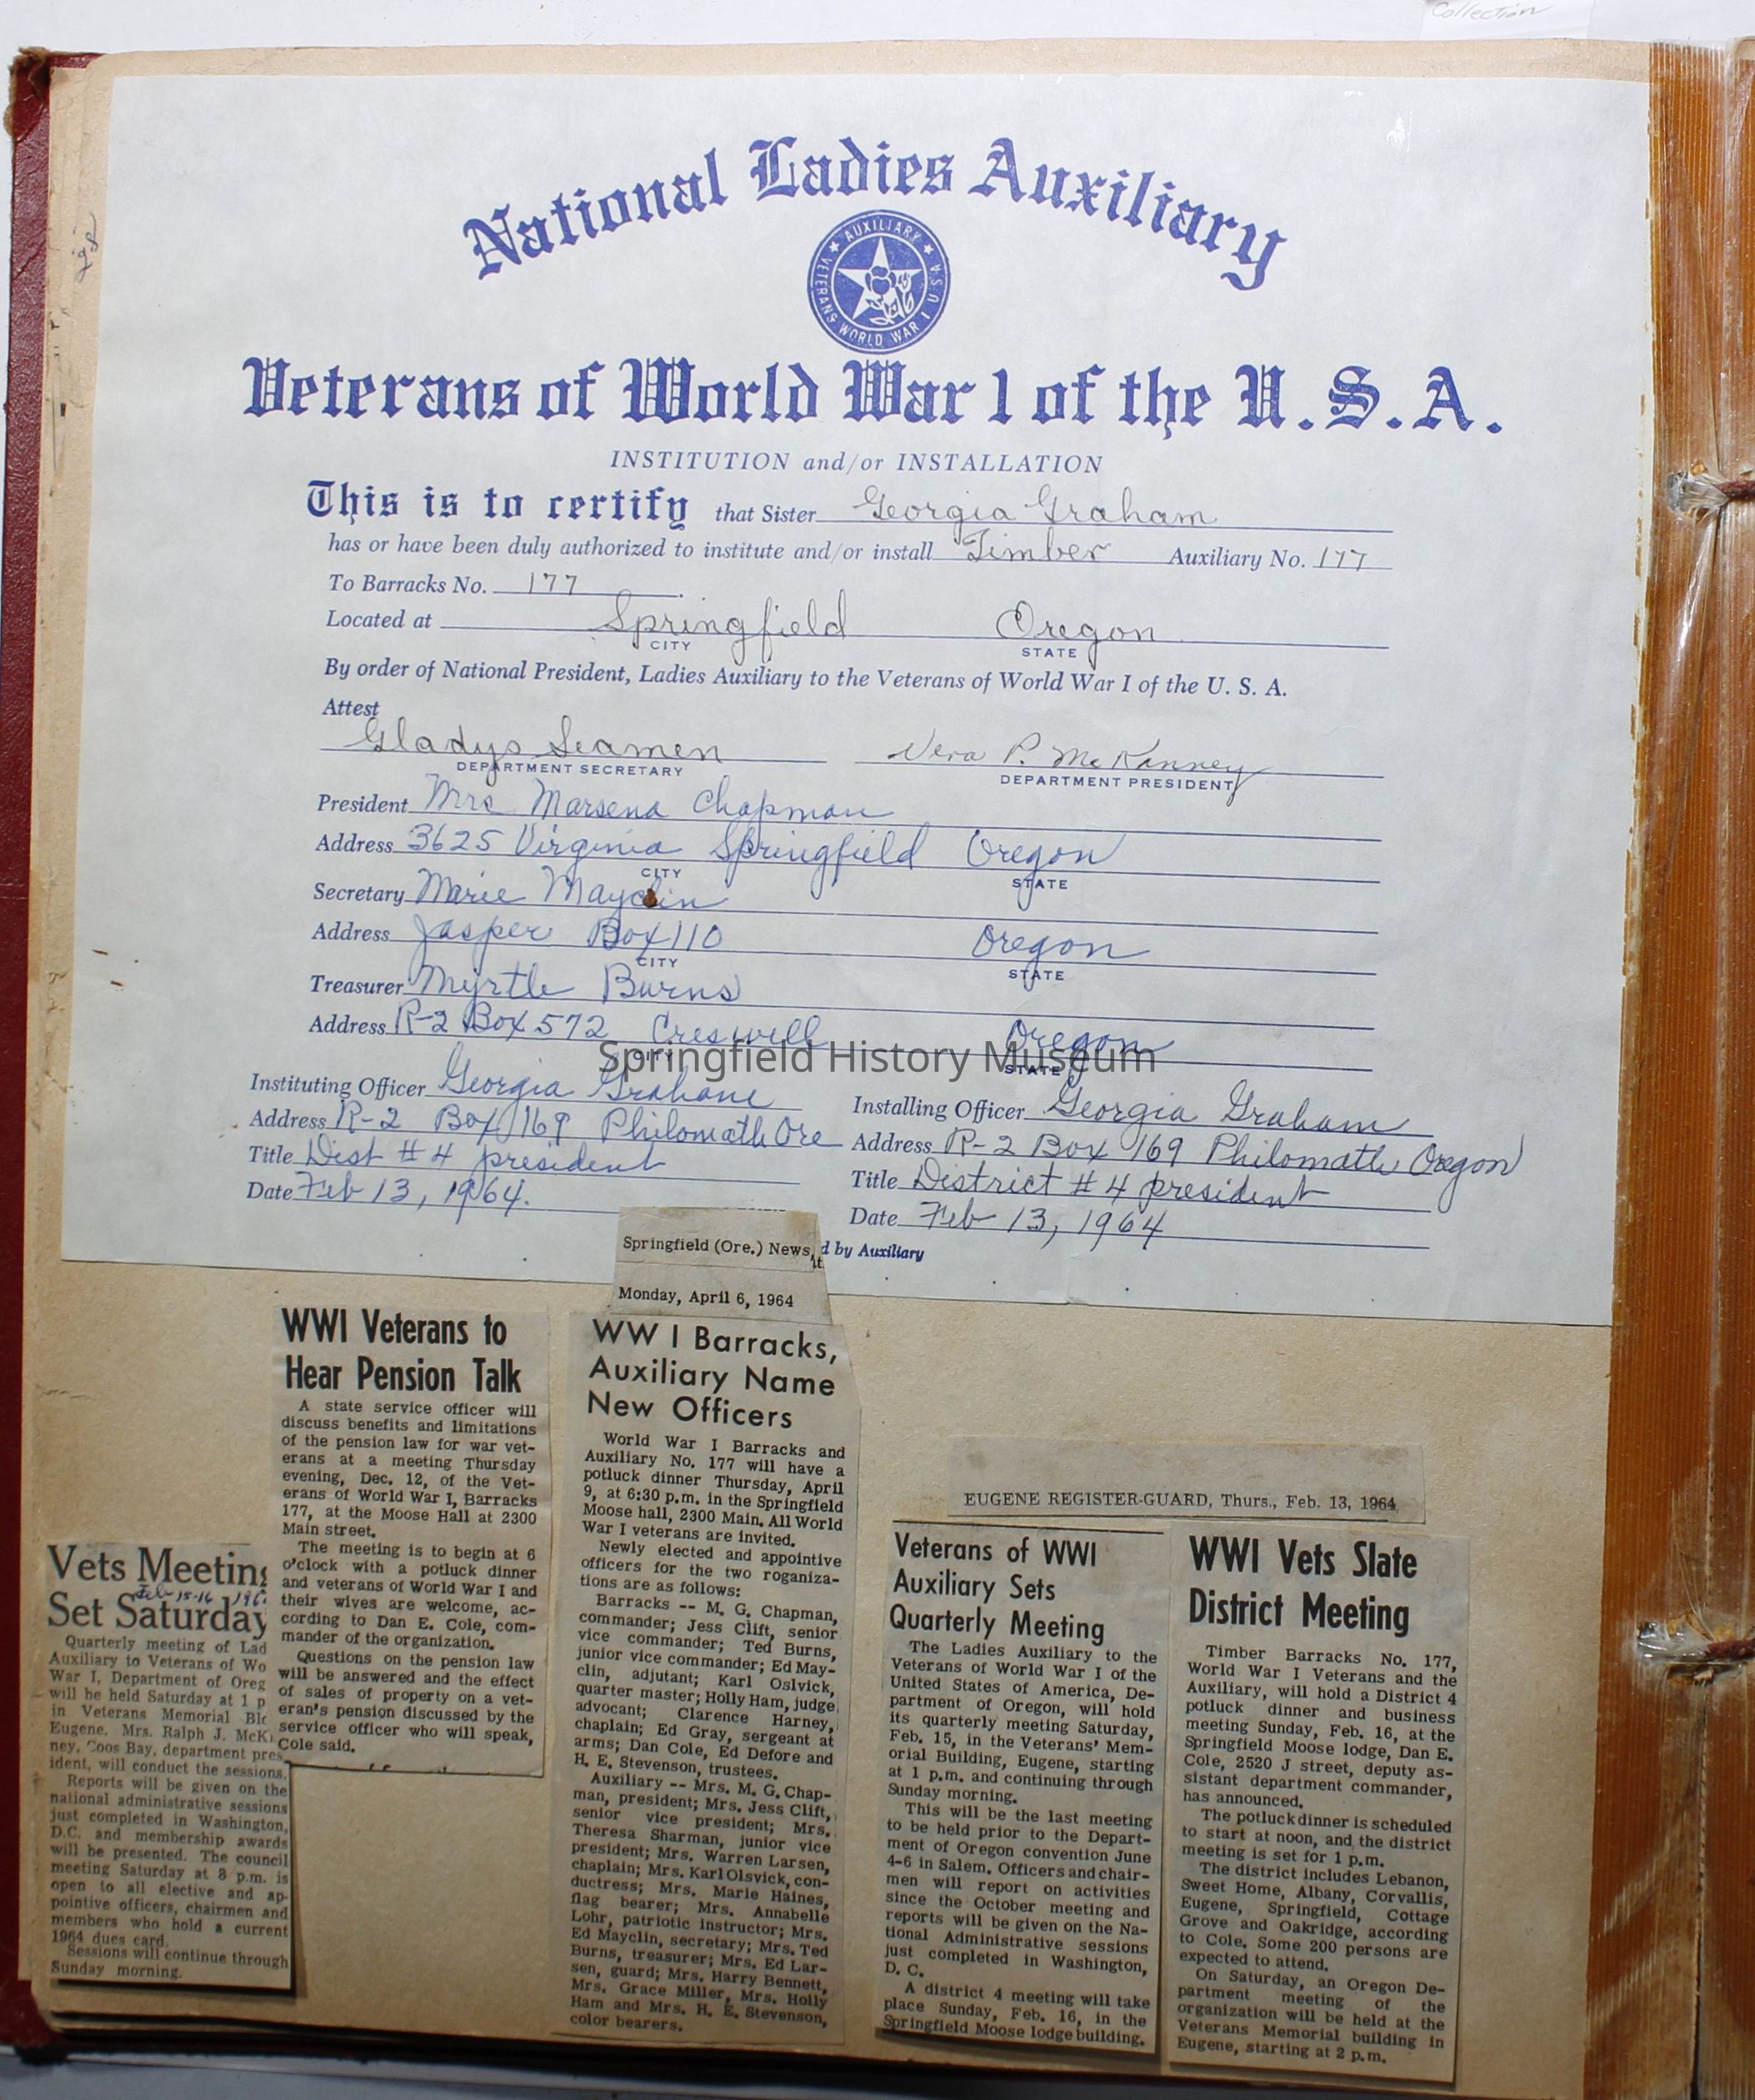 Collection
National Ladies Auxiliary
AUXILIARY
VETERANS WORLD WAR I U.S.A.
Veterans of World War 1 of the U.S.A.
INSTITUTION and/or INSTALLATION
This is to certify that Sister Georgia Graham
has or have been duly authorized to institute and/or install Timber Auxiliary No. 177
To Barracks No. 177
Located at Springfield Oregon
CITY STATE
By order of National President, Ladies Auxiliary to the Veterans of World War I of the U. S. A.
Attest
Gladys Seamen Vera P. McKanney
DEPARTMENT SECRETARY DEPARTMENT PRESIDENT
President Mrs Marsena Chapman
Address 3625 Virginia Springfield Oregon
CITY STATE
Secretary Marie Mayclin
Address Jasper Box 110 Oregon
CITY STATE
Treasurer Myrtle Burns
Address R-2 Box 572 Creswell Oregon
CITY STATE
Springfield History Museum
Instituting Officer Georgia Grahame
Address R-2 Box 169 Philomath Ore
Title Dist #4 president
Date Feb 13, 1964.
Installing Officer Georgia Graham
Address R-2 Box 169 Philomath Oregon
Title District #4 president
Date Feb 13, 1964
d by Auxiliary
Vets Meeting
Feb 15-16 196
Set Saturday
Quarterly meeting of Lad
Auxiliary to Veterans of Wo
War I, Department of Oreg
will be held Saturday at 1 p
in Veterans Memorial Bld
Eugene. Mrs. Ralph J. McK
ney, Coos Bay, department pres
ident, will conduct the sessions.
Reports will be given on the
national administrative sessions
just completed in Washington,
D.C. and membership awards
will be presented. The council
meeting Saturday at 8 p.m. is
open to all elective and ap-
pointive officers, chairmen and
members who hold a current
1964 dues card.
Sessions will continue through
Sunday morning.
WWI Veterans to
Hear Pension Talk
A state service officer will
discuss benefits and limitations
of the pension law for war vet-
erans at a meeting Thursday
evening, Dec. 12, of the Vet-
erans of World War I, Barracks
177, at the Moose Hall at 2300
Main street.
The meeting is to begin at 6
o'clock with a potluck dinner
and veterans of World War I and
their wives are welcome, ac-
cording to Dan E. Cole, com-
mander of the organization.
Questions on the pension law
will be answered and the effect
of sales of property on a vet-
eran's pension discussed by the
service officer who will speak,
Cole said.
Springfield (Ore.) News,
Monday, April 6, 1964
WW I Barracks,
Auxiliary Name
New Officers
World War I Barracks and
Auxiliary No. 177 will have a
potluck dinner Thursday, April
9, at 6:30 p.m. in the Springfield
Moose hall, 2300 Main. All World
War I veterans are invited.
Newly elected and appointive
officers for the two roganiza-
tions are as follows:
Barracks -- M. G. Chapman,
commander; Jess Clift, senior
vice commander; Ted Burns,
junior vice commander; Ed May-
clin, adjutant; Karl Oslvick,
quarter master; Holly Ham, judge
advocant; Clarence Harney,
chaplain; Ed Gray, sergeant at
arms; Dan Cole, Ed Defore and
H. E. Stevenson, trustees.
Auxiliary -- Mrs. M. G. Chap-
man, president; Mrs. Jess Clift,
senior vice president; Mrs.
Theresa Sharman, junior vice
president; Mrs. Warren Larsen,
chaplain; Mrs. Karl Olsvick, con-
ductress; Mrs. Marie Haines,
flag bearer; Mrs. Annabelle
Lohr, patriotic instructor; Mrs.
Ed Mayclin, secretary; Mrs. Ted
Burns, treasurer; Mrs. Ed Lar-
sen, guard; Mrs. Harry Bennett,
Mrs. Grace Miller, Mrs. Holly
Ham and Mrs. H. E. Stevenson,
color bearers.
EUGENE REGISTER-GUARD, Thurs., Feb. 13, 1964
Veterans of WWI
Auxiliary Sets
Quarterly Meeting
The Ladies Auxiliary to the
Veterans of World War I of the
United States of America, De-
partment of Oregon, will hold
its quarterly meeting Saturday,
Feb. 15, in the Veterans' Mem-
orial Building, Eugene, starting
at 1 p.m. and continuing through
Sunday morning.
This will be the last meeting
to be held prior to the Depart-
ment of Oregon convention June
4-6 in Salem. Officers and chair-
men will report on activities
since the October meeting and
reports will be given on the Na-
tional Administrative sessions
just completed in Washington,
D. C.
A district 4 meeting will take
place Sunday, Feb. 16, in the
Springfield Moose lodge building.
WWI Vets Slate
District Meeting
Timber Barracks No. 177,
World War I Veterans and the
Auxiliary, will hold a District 4
potluck dinner and business
meeting Sunday, Feb. 16, at the
Springfield Moose lodge, Dan E.
Cole, 2520 J street, deputy as-
sistant department commander,
has announced.
The potluck dinner is scheduled
to start at noon, and the district
meeting is set for 1 p.m.
The district includes Lebanon,
Sweet Home, Albany, Corvallis,
Eugene, Springfield, Cottage
Grove and Oakridge, according
to Cole. Some 200 persons are
expected to attend.
On Saturday, an Oregon De-
partment meeting of the
organization will be held at the
Veterans Memorial building in
Eugene, starting at 2 p.m.